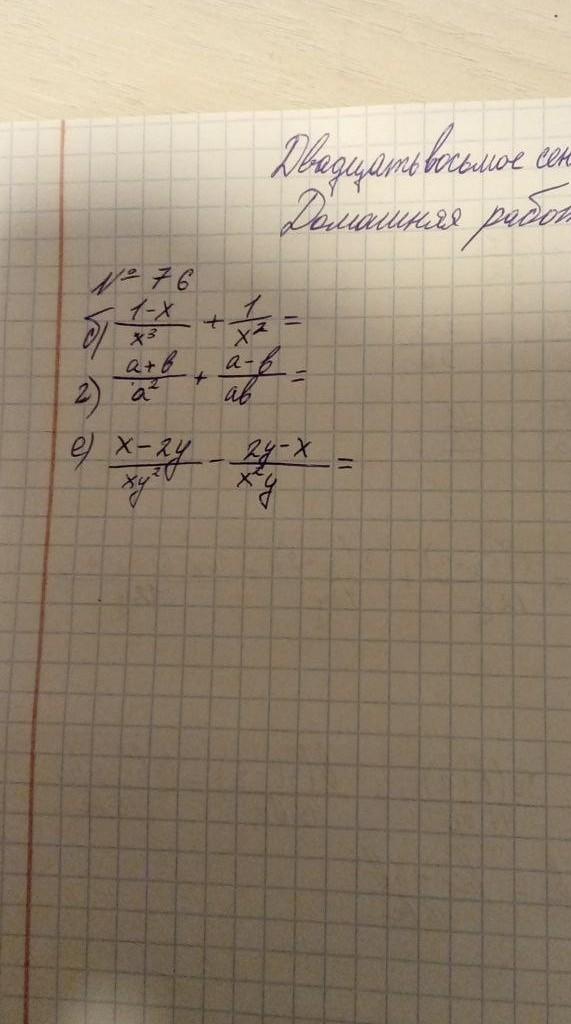 Двадцать восьмое сен
Домашняя работ
№ 76
б) \frac{1-x}{x^3} + \frac{1}{x^2} =
г) \frac{a+b}{a^2} + \frac{a-b}{ab} =
е) \frac{x-2y}{xy^2} - \frac{2y-x}{x^2y} =